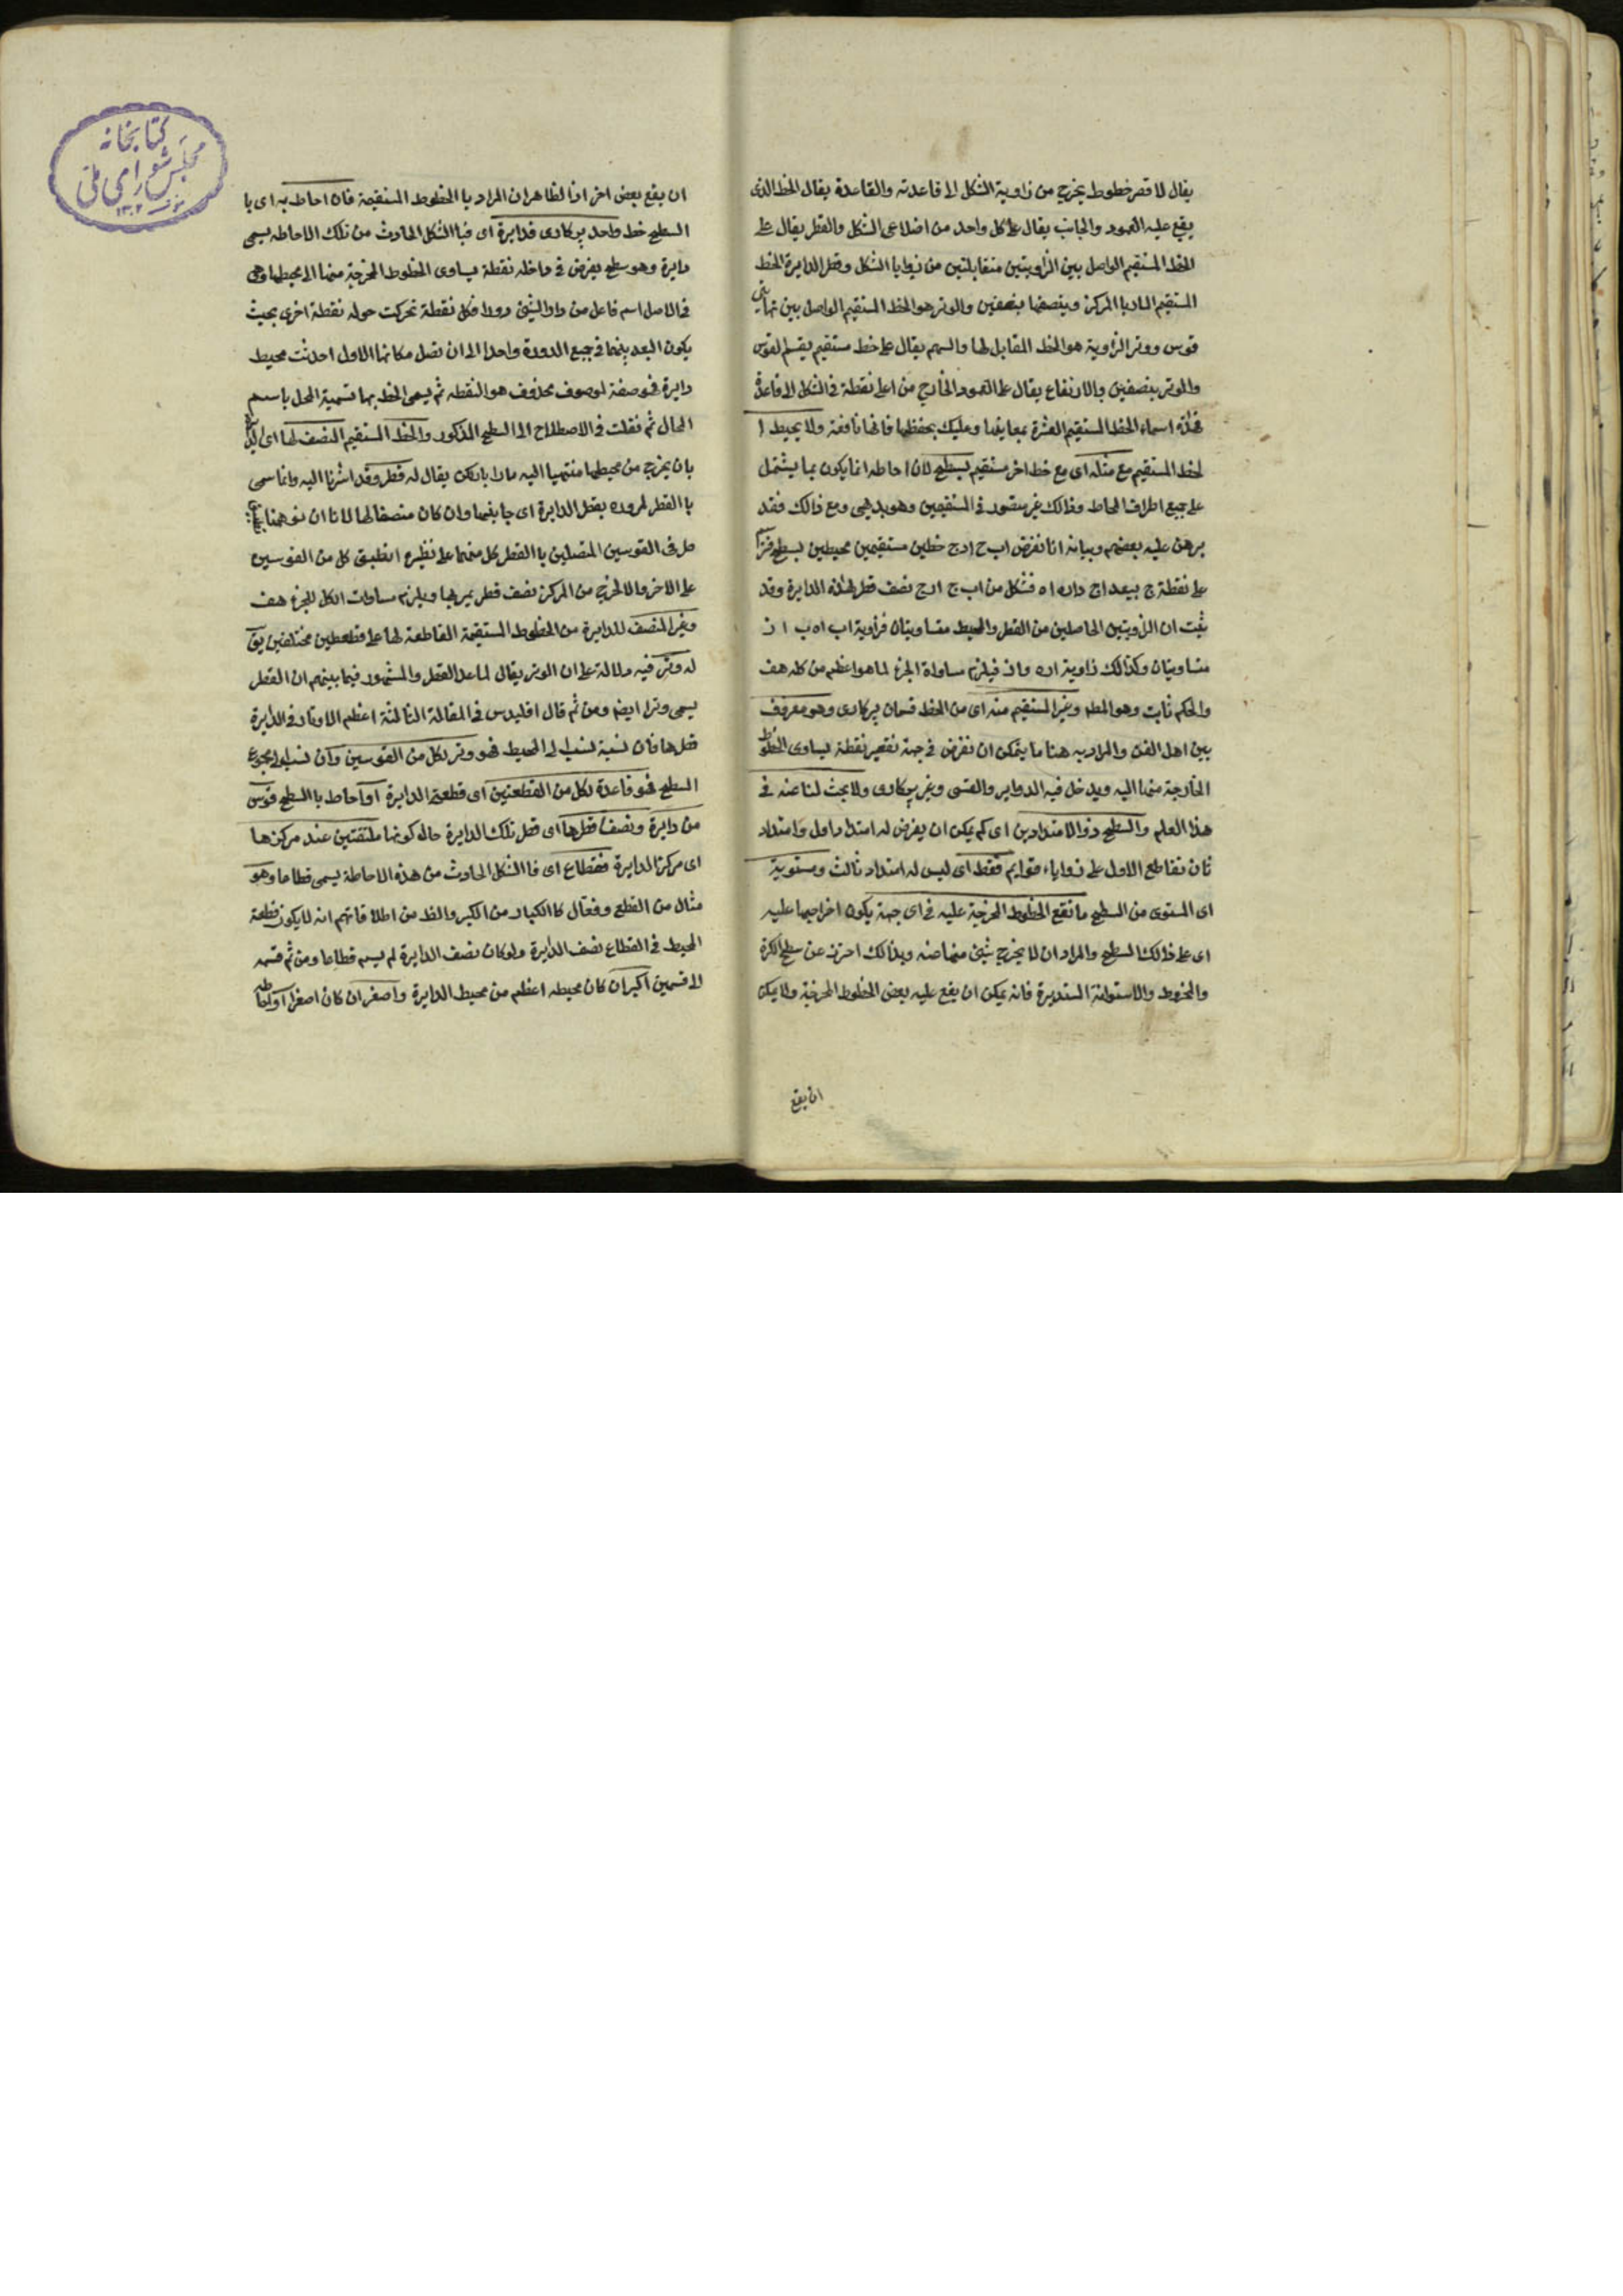 يقال لا قصر خطوط يخرج من زاوية الشكل الى قاعدته والقاعدة يقال الخط الذى
يقع عليه العمود والجانب يقال على كل واحد من اضلاعى الشكل والقطر يقال على
الخط المستقيم الواصل بين الزاويتين متقابلتين من زوايا الشكل وقطر الدايرة الخط
المستقيم المار با المركز وينصفها بنصفين والوتر هو الخط المستقيم الواصل بين نهايتى
قوس ووتر الزاوية هو الخط المقابل لها والسهم يقال على خط مستقيم يقسم القوس
والوتر بنصفين والارتفاع يقال على العمود الخارج من اعلى نقطة فى الشكل الى قاعدة
فهذه اسماء الخط المستقيم العشرة بمعانيها وعليك بحفظها فانها نافعة ولا يحيط ا
لخط المستقيم مع مثله اى مع خط اخر مستقيم بسطح لان احاطه انما يكون بما يشتمل
على جميع اطراف المحاط وذالك غير متصور فى المستقيمين وهو بديهى ومع ذالك فقد
برهن عليه بعضهم وبيانه انا نفرض اب ح ا د ج خطين مستقيمين محيطين بسطح
على نقطة ج ببعد اج داره اه فشكل من اب ج ا د ج نصف قطر لهذه الدايرة وقد
ثبت ان الزاويتين الحاصلين من القطر والمحيط متساويتان فزاوية اب اه ب ا ز
متساويتان وكذالك زاوية اده واز فيلزم مساواة الجزء لما هو اعظم من كله هف
والحكم ثابت وهو المط وغير المستقيم منه اى من الخط قسمان بركارى وهو معروف
بين اهل الفن والمراد به هنا ما يمكن ان نفرض فى جهة تقعير نقطة يساوى الخطوط
الخارجة منها اليه ويدخل فيه الدواير والقسى وغير بركارى ولا بحث لنا عنه فى
هذا العلم والسطح ذو الامتدادين اى كم يمكن ان يفرض له امتداد اول وامتداد
ثان تقاطع الاول على زواياء قوايم فقط اى ليس له امتداد ثالث ومستويه
اى المستوى من السطح ما تقع الخطوط المخرجة عليه فى اى جهة يكون اخراجها عليه
اى على ذالك السطح والمراد ان لا يخرج شئ منها عنه وبذالك احترز عن سطح الكرة
والمخروط والاستوانة المستديرة فانه يمكن ان يقع عليه بعض الخطوط المخرجة ولا يمكن
ان يقع
كتابخانه
مجلس شوراى ملى
ان يقع بعض اخر اذ الظاهر ان المراد با الخطوط المستقيمة فان احاط به اى با
السطح خط واحد بركارى فدايرة اى فبا الشكل الحادث من تلك الاحاطه يسمى
دايرة وهو سطح يفرض فى داخله نقطة يساوى الخطوط المخرجة منها الى محيطها وهى
فى الاصل اسم فاعل من دار الشئ دورا فكل نقطة تحركت حوله نقطة اخرى بحيث
يكون البعد بينهما فى جميع الدورة واحدا الى ان تصل مكانها الاول احدثت محيط
دايرة فهو صفة لموصوف محذوف هو النقطه ثم يسمى الخط بها تسمية المحل باسم
الحال ثم نقلت فى الاصطلاح الى السطح المذكور والخط المستقيم المنصف لها اى
بان يخرج من محيطها منتهيا اليه مارا بالمركز يقال له قطر وقد اشرنا اليه وانما سمى
با القطر لمروره بقطر الدايرة اى جانبها وان كان منصفا لها لانا ان توهمنا
كل فى القوسين المتصلين با القطر كل منهما على نظيره انطبق كل من القوسين
على الاخر والا لخرج من المركز نصف قطر يمر بها ويلزم مساوات الكل للجزء هف
وغير المنصف للدايرة من الخطوط المستقيمة القاطعة لها على قطعطين مختلفين يق
له وتر فيه دلالة على ان الوتر يقال لما عدا القطر والمشهور فيما بينهم ان القطر
يسمى وترا ايضا ومن ثم قال اقليدس فى المقالة الثالثة اعظم الاوتار فى الدايرة
قطرها فان نسبة لنسب الى المحيط فهو وتر لكل من القوسين وان نسب الى مجموع
السطح فهو قاعدة لكل من القطعتين اى قطعة الدايرة او احاط با السطح قوس
من دايرة ونصفا قطرها اى قطر تلك الدايرة حاله كونهما ملتقتين عند مركزها
اى مركز الدايرة فقطاع اى فا الشكل الحادث من هذه الاحاطة يسمى قطاعا وهو
مثال من القطع وفعال كا الكبار من الكبر والظ من اطلاقاتهم انه لا يكون قطعة
المحيط فى القطاع نصف الدايرة ولو كان نصف الدايرة لم يسم قطاعا ومن ثم قسمه
الا قسمين اكبر ان كان محيطه اعظم من محيط الدايرة واصغر ان كان اصغر او احاطه